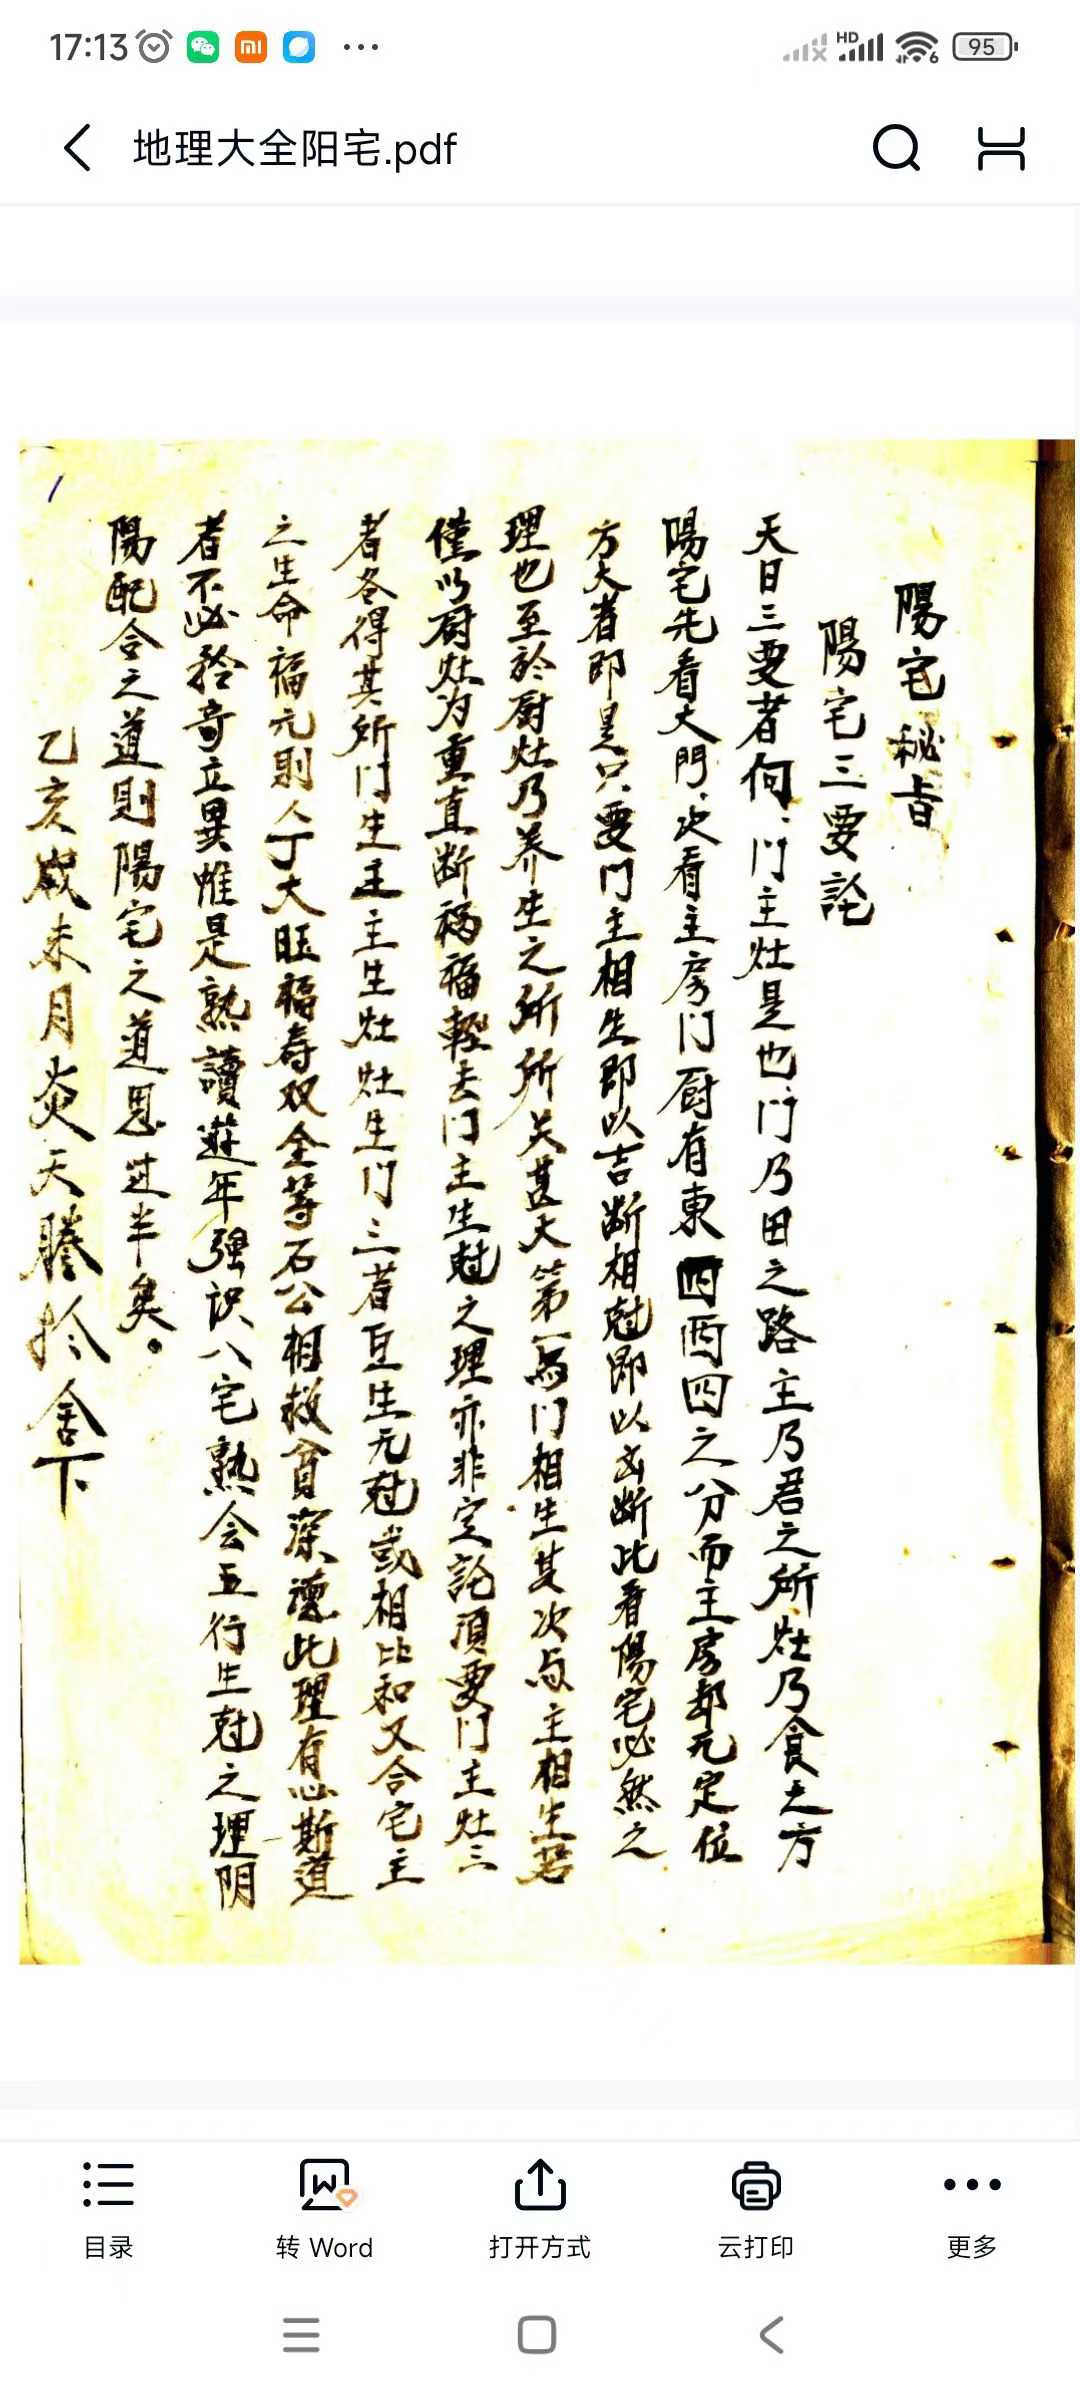 17:13
HD
6
95
地理大全阳宅.pdf
陽宅秘旨
陽宅三要論
天日三要者何、门主灶是也、门乃田之路主乃君之所灶乃食之方
陽宅先看大門、次看主房门厨有東四西四之分而主房都无定位
方大者即是只要门主相生即以吉断相尅即以凶断此看陽宅必然之
理也至於厨灶乃养生之所所关甚大第一為门相生其次与主相生若
僅以厨灶为重直断祸福輕去门主生尅之理亦非定論須要门主灶三
者各得其所门生主主生灶灶生门三者互生无尅或相比和又合宅主
之生命福元則人丁大旺福寿双全等石公相救貧深德此理有心斯道
者不必矜奇立異惟是熟讀遊年强识八宅熟会五行生尅之理阴
陽配合之道則陽宅之道思过半矣。
乙亥歲未月炎天謄於舍下
目录
转 Word
打开方式
云打印
更多